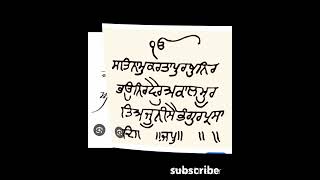 ੴ
ਸਤਿਨਾਮੁਕਰਤਾਪੁਰਖੁਨਿਰ
ਭਉਨਿਰਵੈਰੁਅਕਾਲਮੂਰ
ਤਿਅਜੂਨੀਸੈਭੰਗੁਰਪ੍ਰਸਾ
ਦਿ॥ ॥ਜਪੁ॥ ॥ ॥
subscribe